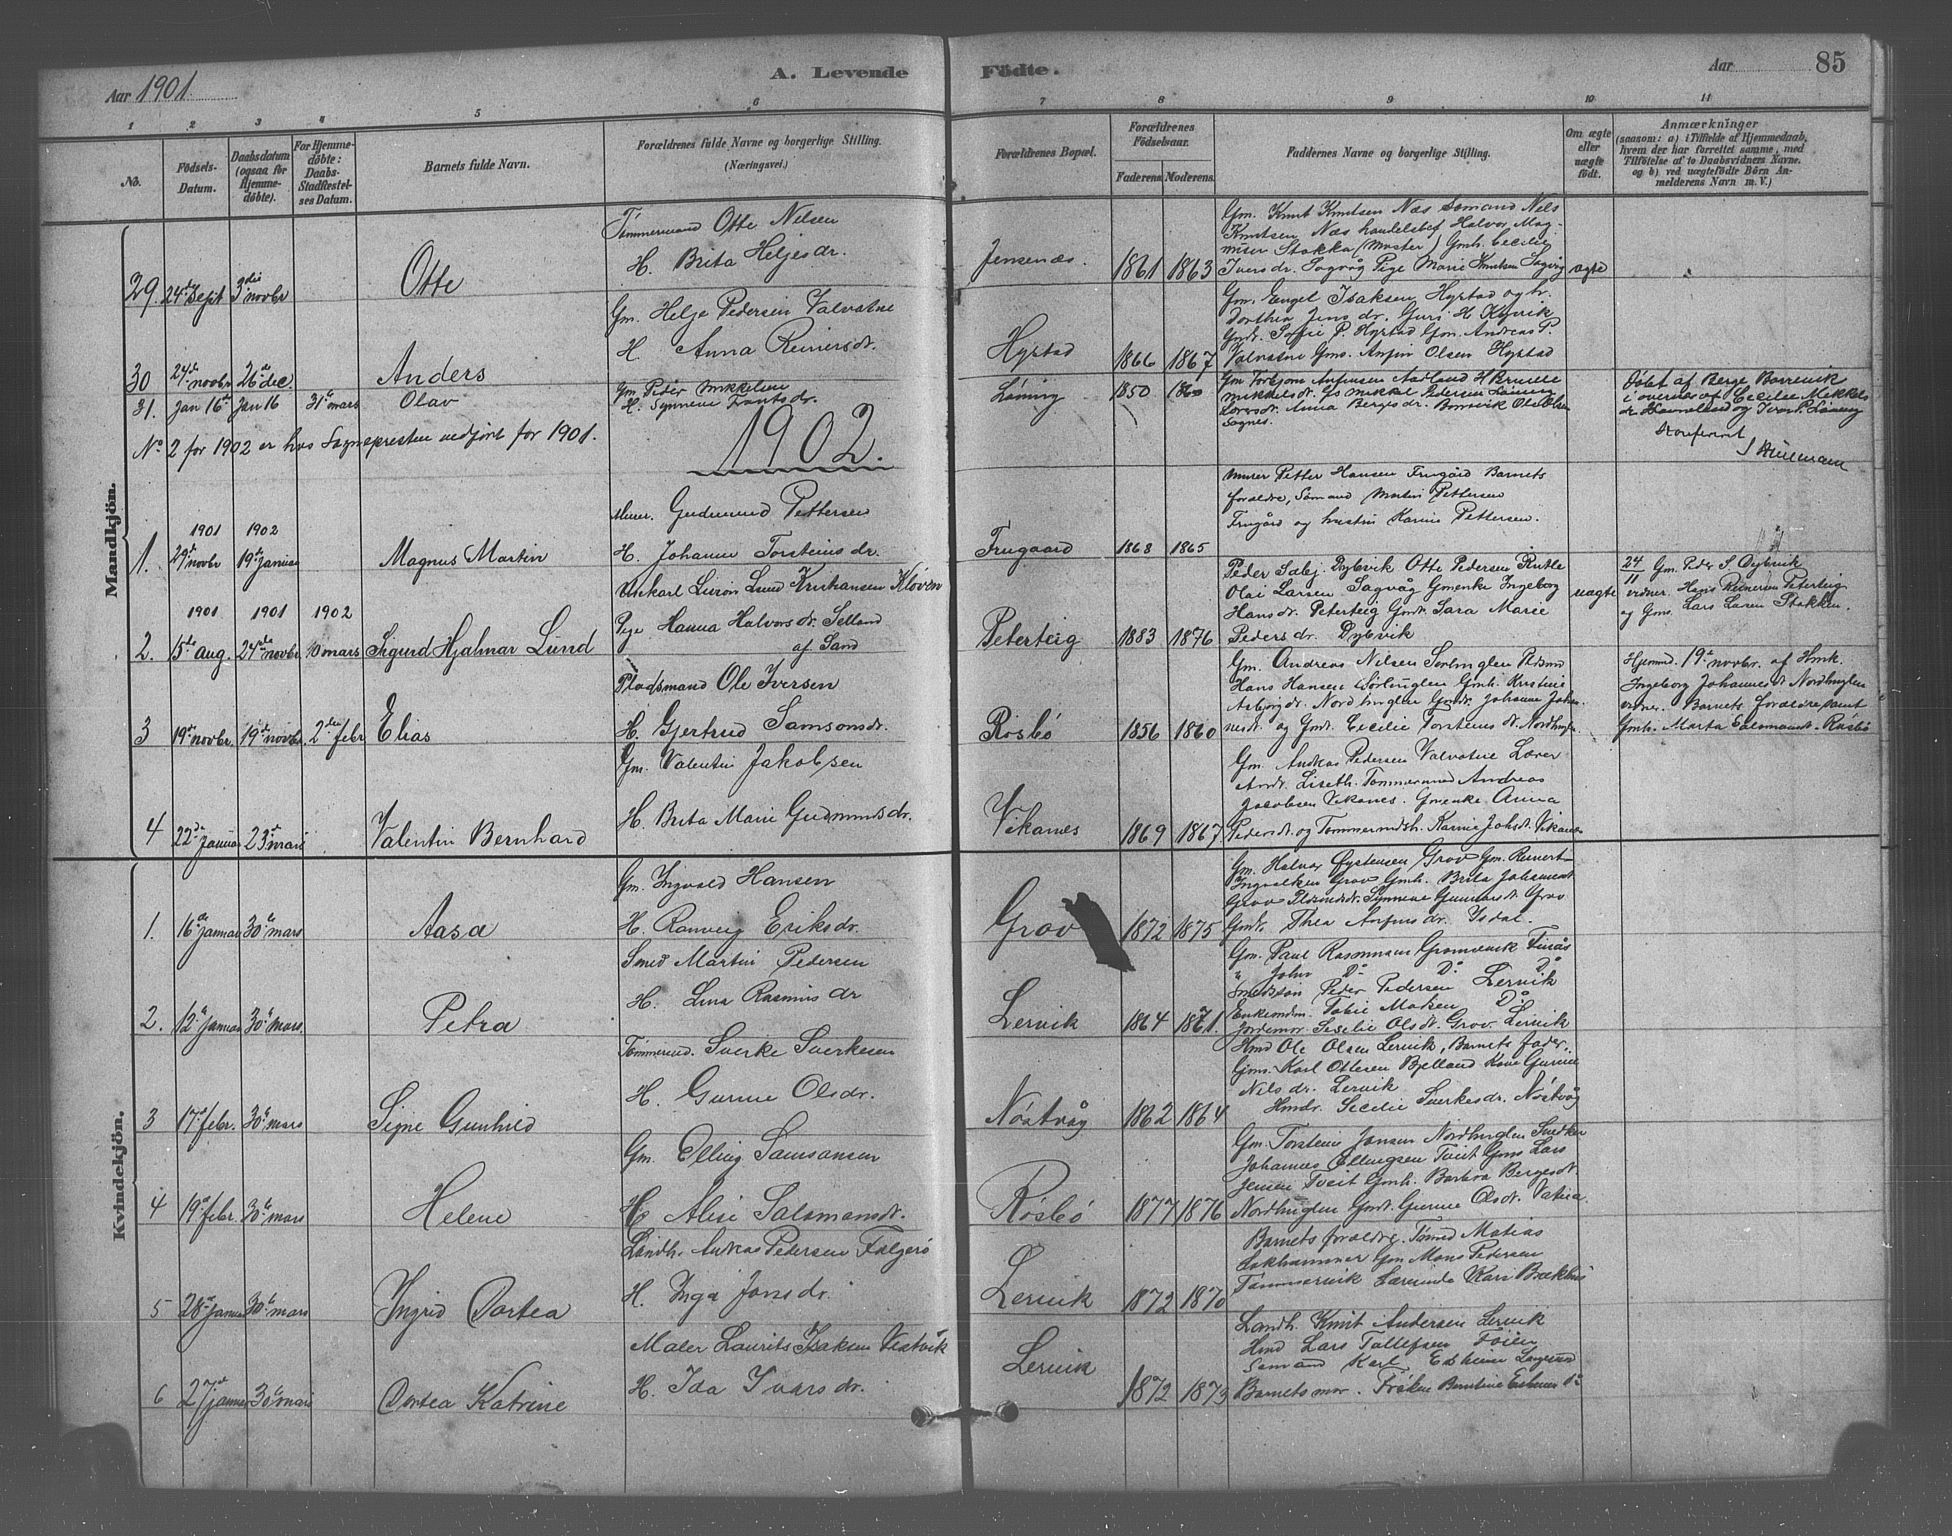 Aar 1901
A. Levende Födte.
Aar 85
1 2 3 4 5 6 7 8 9 10 11
No.
Födsels-Datum.
Daabsdatum (ogsaa för Hjemme-döbte).
For Hjemme-döbte: Daabs-Stadfæstel-ses Datum.
Barnets fulde Navn.
Forældrenes fulde Navne og borgerlige Stilling. (Næringsvei.)
Forældrenes Bopæl.
Forældrenes Födselsaar.
Faderens. Moderens.
Faddernes Navne og borgerlige Stilling.
Om ægte eller uægte födt.
Anmærkninger
(saasom: a) i Tilfælde af Hjemmedaab, hvem der har forrettet samme, med Tilföielse af to Daabsvidners Navne. og b) ved uægtefödte Börn An-melderens Navn m. V.)
Mandkjön.
29. 24de Sept 3die novbr
Otte
Tömmermand Otte Nilsen
H. Brita Heljesdr.
Jensenæs. 1861 1863
Gm. Knut Knutsen Næs Sömand Nils
Knutsen Næs handelsbef Halvor Mag-
Stokka (Moster) Gmh. Cecilie
Iversdr. Sagvåg Pige Marie Knutsen Sagvåg
ægte
30 24de novbr 26de dec.
Anders
Gm. Helje Pedersen Valvatne
H. Anna Reinersdr.
Hystad 1866 1867
Gm. Engel Isaksen Hystad og tr.
Dorthea Jensdr. Guri H.
Gmdr. Sofie P. Hystad Gm. Andreas P.
Valvatne Gms. Anfin Olsen Hystad
31. Jan 16de Jan 16 31te mars
Olav
Gm. Peder Mikkelsen
H. Synneve
Löning 1850 1860
Gm Torbjörn Anfinsen Aadland H
Mikkelsdr. Gs Mikkel Pedersen Löning
Anna Bergesdr. Borrevik
Sagnes.
Döbt af Berge Borrevik
i overvær af Cecilie Mikkels
dr. og Iver P. Löning
Konfirmt
No. 2 for 1902 er hos Sognepresten nedfört for 1901.
1902.
1. 1901 29de novbr 1902 19de januar
Magnus Martin
Murer. Gudmund Pettersen
H. Johanne Torsteinsdr.
Frugaard 1868 1865
Murer Petter Hansen Frugård Barnets
foraldre, Sömand Martin Pettersen
Frugård og hustru Karine Pettersen.
2. 1901 15de aug. 1901 24de novbr 1902 10 mars
Sigurd Hjalmar Lund
Ungkarl Lund Kristiansen Kloven
Pige Hanna Halvorsdr. Setland
af Sand
Peterteig 1883 1876
Peder Dybvik Otte Pedersen
Olai Larsen Sagvåg Gmenke Ingeborg
Hansdr. Peterteig Gmdr. Sara Marie
Pedersdr. Dybvik
uægte
24/11 Gm. Peder S. Dybvik
vidner. Hans Reinersen Peterteig
og Gms. Lars Larsen Stokken.
3 19de novbr. 19de novbr. 2den febr
Elias
Pladsmand Ole Iversen
H. Gjertrud Samsonsdr.
Rösbö 1856 1860
Gm. Andreas Nilsen Sörhuglen
Hans Hansen Sörhuglen Gmh. Kristine
Asbjörgdr. Nordhuglen Gmdr. Johanne Johan-
nesdr. og Gmdr. Cecilie Torsteinsdr. Nordhuglen
Hjemmd. 19de novbr. af Hmk.
Ingeborg Johannesdr. Nordhuglen
vidner. Barnets foraldre samt
Gmh. Marta Salomonsdr. Rösbö
4 22de Januar 23de mars
Valentin Bernhard
Gm. Valentin Jakobsen
H. Brita Marie Gudmundsdr.
Vikanes 1869 1867
Gm. Andreas Pedersen Valvatne Lærer
Liseth. Tömmermand Andreas
Jacobsen Vikanes. Gmenke Anna
Pedersdr. og Tömmermdsh. Karine Johsdr. Vikanes
Kvindekjön.
1. 16de januar 30te mars
Aasa
Gm. Ingvald Hansen
H. Ranveig Eriksdr.
Grov 1872 1875
Gm. Halvor Öystensen Grov Gm. Reinert
Ingvaldsen Grov Gmh. Brita Johannesdr
Grov Synneve Gunnarsdr. Grov
Gmdr. Thea Anfinsdr. Isdal.
2. 12te januar 30te mars.
Petra
Smed Martin Pedersen
H. Lina Rasmusdr
Lervik 1864 1871.
Gm. Paul Rasmussen Grönevik Finås
" John Do Do Do
Smedsön Peder Pedersen Lervik
Enkemdm. Tobie Madsen Do
Jordemor. Secilie Olsdr. Grov. Lervik
3 17de febr. 30te mars
Signe Gunhild
Tömmermd. Sverke Sverkesen
H. Gurine Olsdr.
Nöstvåg 1862 1864
Hmd Ole Olsen Lervik, Barnets fader.
Gms. Karl Ottesen Bjelland Kone Gurine
Nilsdr. Lervik
Hmdr. Secilie Sverkesdr. Nöstvåg
4 19de febr. 30te mars
Helene
Gm. Elling Samsonsen
H. Alise Salomonsdr.
Rösbö 1877 1876
Gm. Torstein Jansen Nordhuglen Snedker
Johannes Ellingsen Tveit Gms Lars
Jensen Tveit Gmh. Barbra Bergesdr
Nordhuglen Gmdr. Gurine Olsdr. Vatna
5 28de Januar 30te mars
Ingrid Dortea
Landh. Andreas Pedersen Falgerö
H. Inga Jonsdr.
Lervik 1872 1870
Barnets foraldre. Tömmd Matias
Lokhammer Gm Mons Pedersen
Tömmervik Lærerinde Kari Brækhus
6 27de januar 30te mars
Dortea Katrine
Maler Laurits Isaksen Vestvik
H. Ida Ivarsdr.
Lervik 1872 1873
Landh. Knut Andersen Lervik
Hmd Lars Tollefsen Töien
Sömand Karl
Barnets mor. Fröken